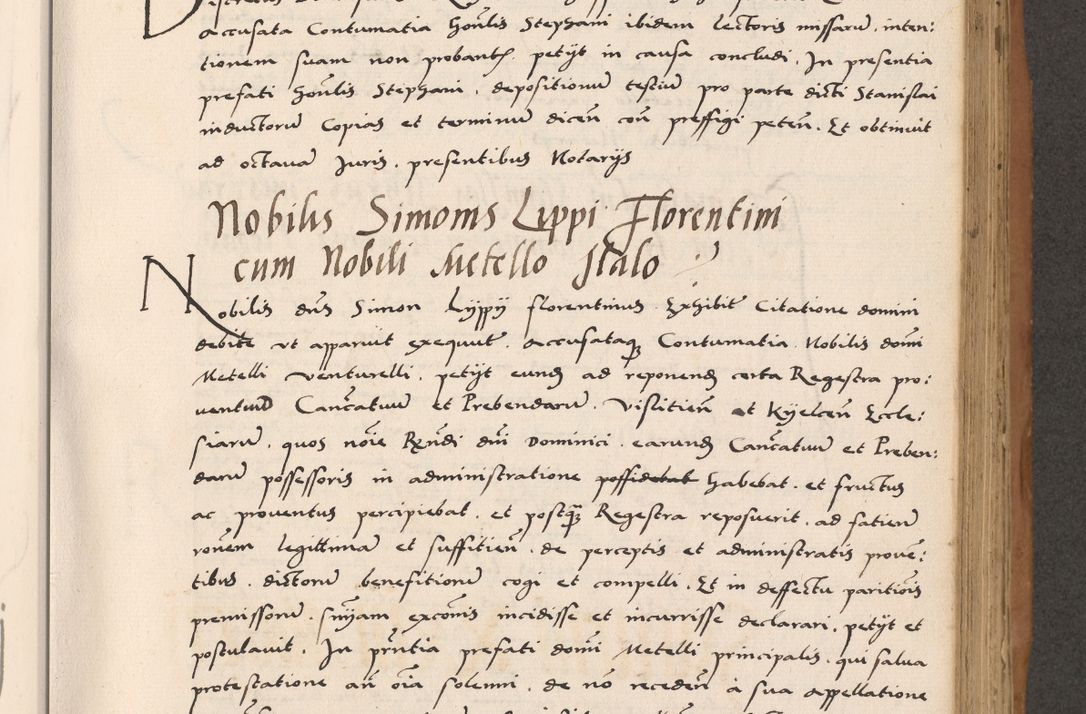 accusata Contumatia hon̄lis Stephani ibidem lectoris missarū. inten:
tionem suam non probantꝭ. petijt in causa concludi. In presentia
prefati hon̄lis Stephani. depositionum testiū pro parte dicti Stanislai
inductorū Copias et terminum diceñ coñ preffigi peteñ. Et obtinuit
ad octavā Juris. presentibus Notarijs
Nobilis Simonis Lippi Florentini
cum Nobili Metello Italo
Nobilis dn̄s Simon Lyppÿ florentinus. Exhibitꝭ Citatione domini
debite ut apparuit exequutꝭ. accusataqꝫ Contumatia. Nobilis domī
Metelli venturelli. petijt eundꝭ ad reponendꝭ certa Regestra pro:
ventuū Can̄catuum et Prebendarū. Vislitieñ et Kyelceñ Eccle:
siarū. quos noīe Rn̄di dn̄i Dominici. earundꝭ Can̄catuum et Preben:
darū possessoris in administratione possidebat habebat. et fructus
ac proventus percipiebat. et postqꝫ Regestra reposuerit. ad faticn̄
ron̄em legittimā et suffitieñ. de perceptis et administratis proven̄:
tibus. dictorū benefitiorū cogi et compelli. Et in deffectu paritiōis
premissorū. sn̄iam excom̄is incidisse et incurrisse declarari. petijt et
postulavit. In pn̄tia prefati domī Metelli principalis. qui salva
protestatione añ oīa solenni. de nō recedeñ à sua appellatione